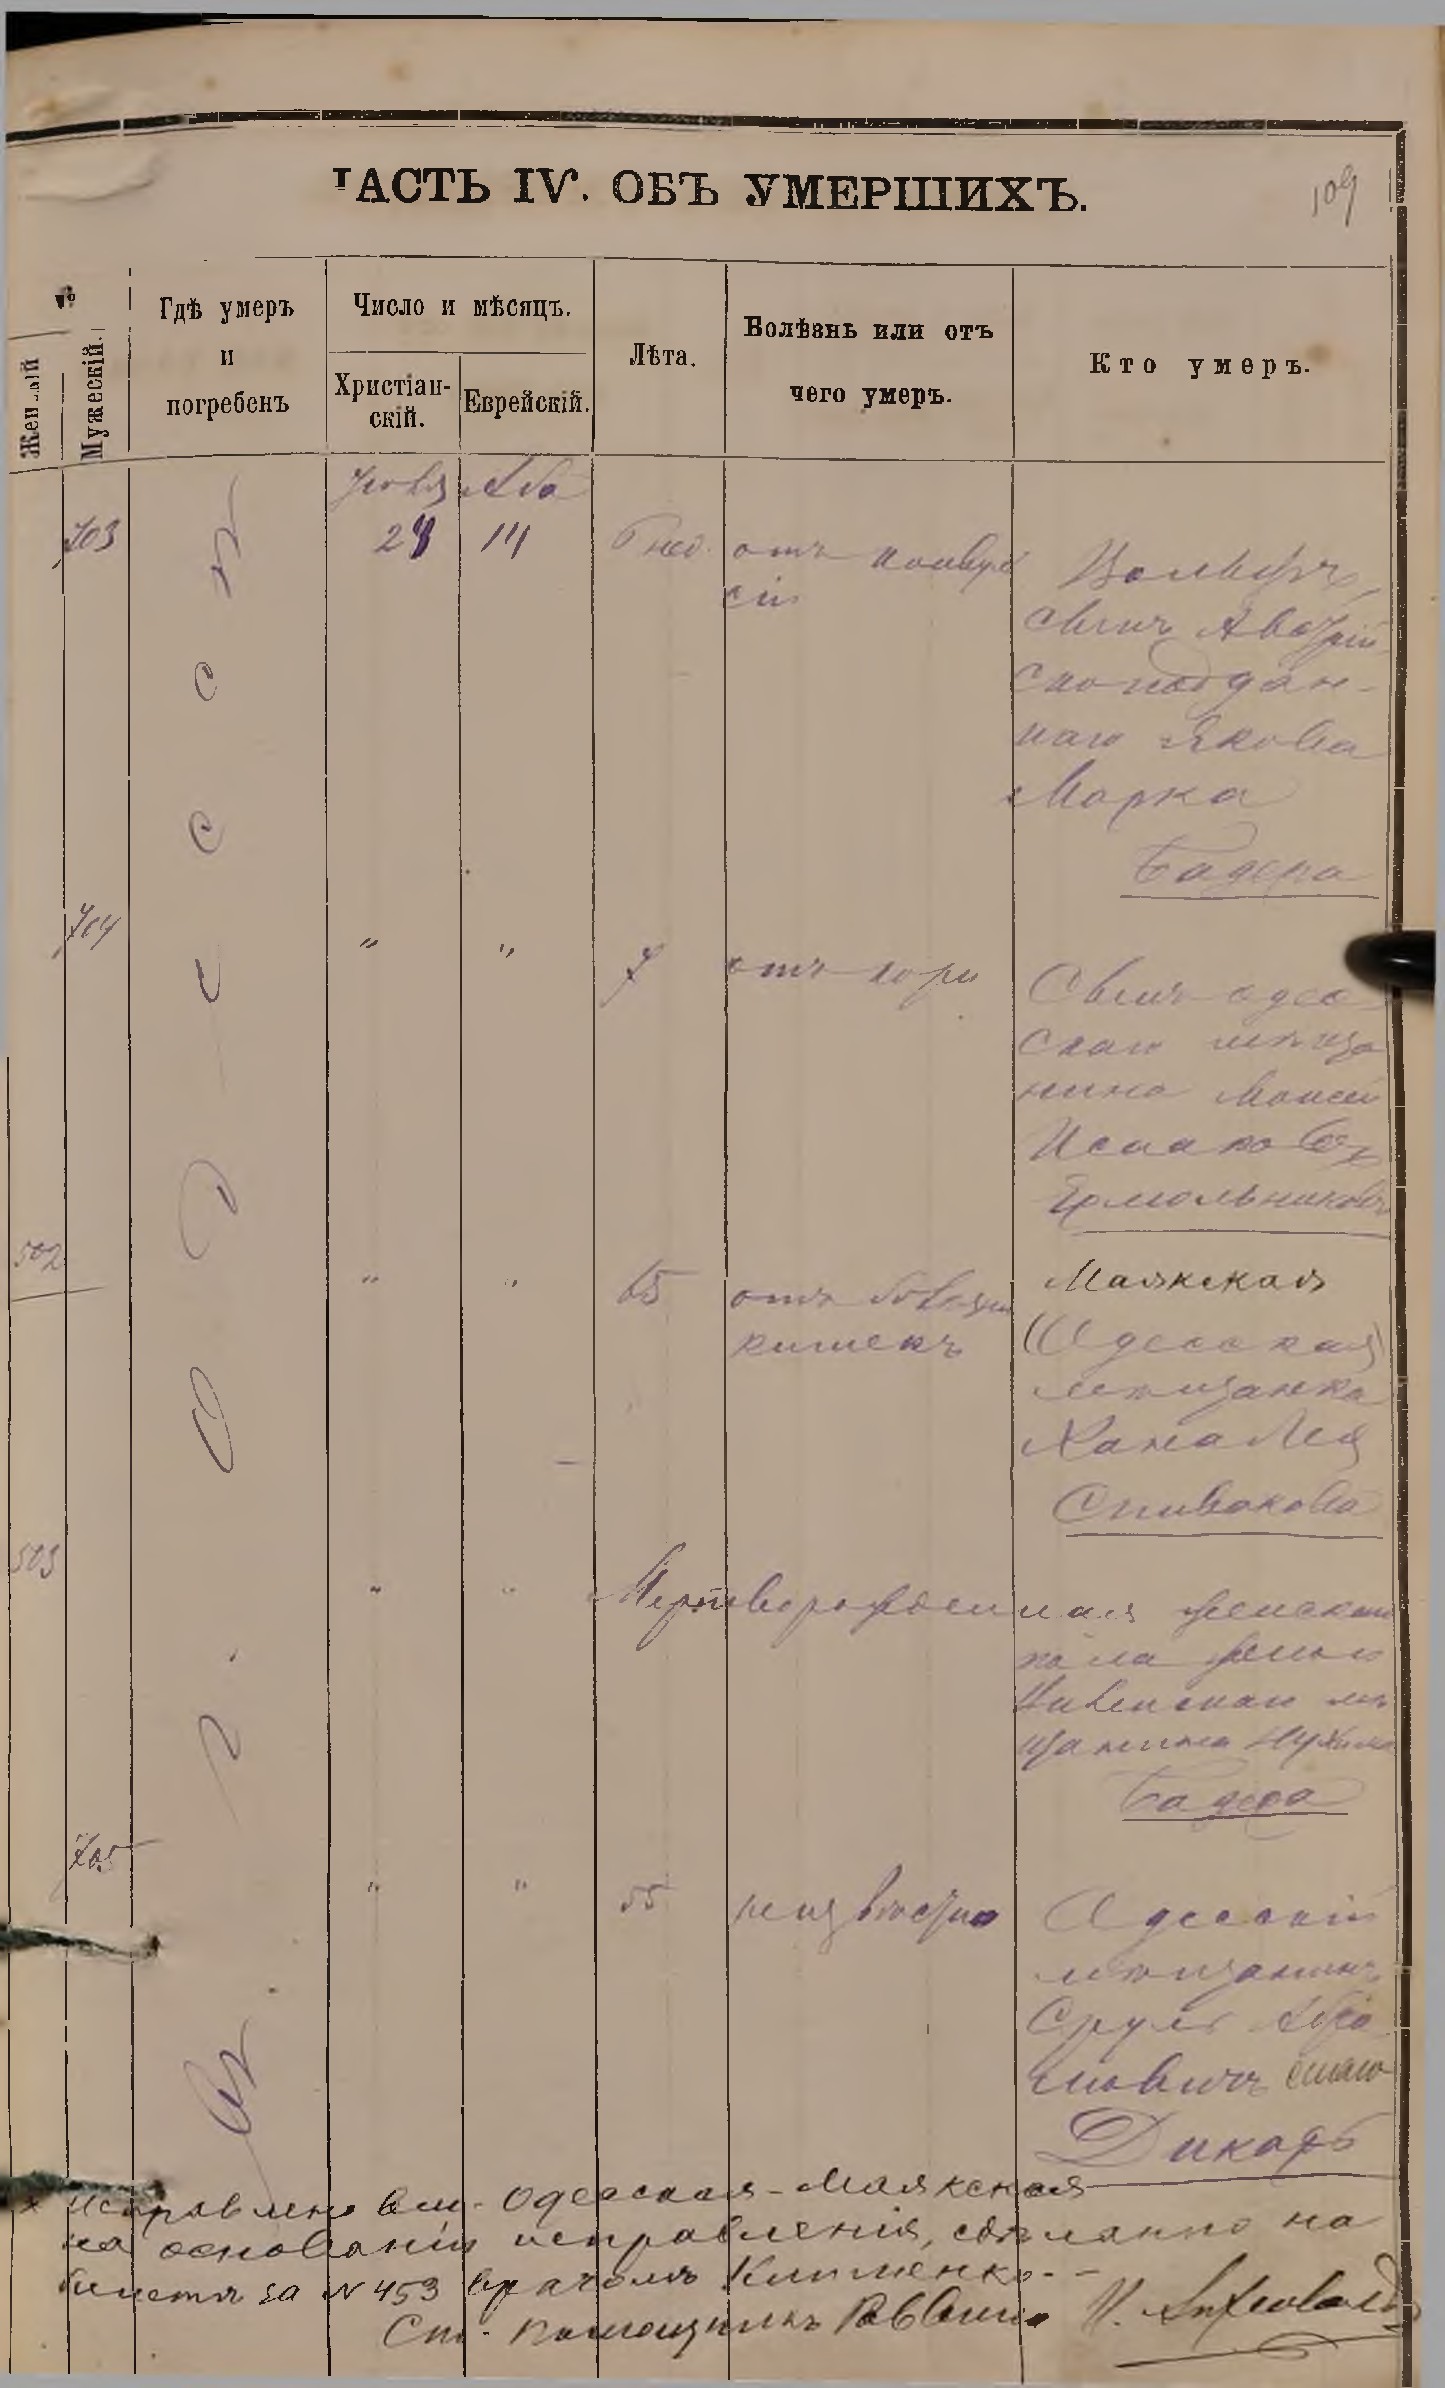 ЧАСТЬ IV. ОБЪ УМЕРШИХЪ.
109
№
Женскій
Мужескій.
Гдѣ умеръ
и
погребенъ
Число и мѣсяцъ.
Христіан-
скій.
Еврейскій.
Лѣта.
Болѣзнь или отъ
чего умеръ.
Кто умеръ.
въ г. Одессѣ
Аба
703
14
нед.
отъ конвуль
сій
Вольфъ,
сынъ Австрій
скоподдан-
наго Якова
Марка
Бадера
704
"
"
7
отъ кори
Сынъ одес
скаго мѣща
нина
Исаковъ
Ермольниковъ
502
"
"
65
отъ
кишекъ
Маякская
(Одесская)
мѣщанка
Хана Лея
Спивакова
503
"
"
Мертворожденная женскаго
пола
мѣ
щанина Нухима
Бадера
705
"
"
55
неизвѣстно
Одесскій
мѣщанинъ
Сруль Абра
мовичъ
Дикарь
х исправлено вм. Одесская - Маякская
на основаніи исправленія, сдѣланно на
билетѣ за № 453 врачомъ Клименко -
помощникъ Раввина